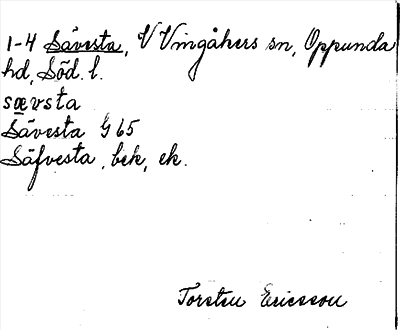 1-4 Sävesta, V Vingåkers sn, Oppunda
hd, Söd. l.
sævsta
Sävesta G 65
Säfvesta, bek, ek.
Torsten Ericsson